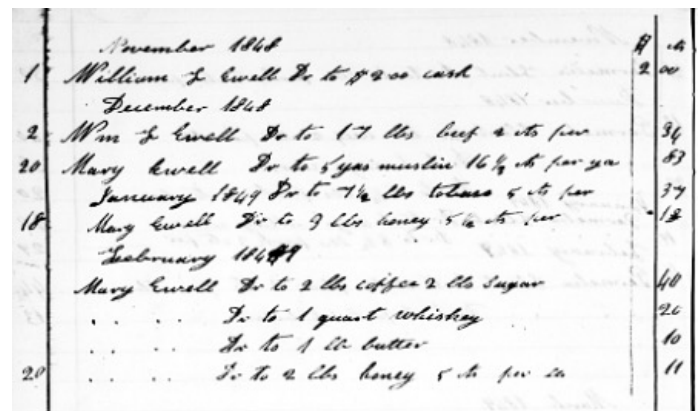 November 1848 $ cts
1 William F Ewell Dr to $2.00 cash 2 00
December 1848
2 Wm F Ewell Dr to 17 lbs beef 2 cts per 34
20 Mary Ewell Dr to 5 yds muslin 16 ½ cts per yd 83
January 1849 Dr to 7½ lbs tobaco 5 cts per 37
18 Mary Ewell Dr to lbs honey cts per
February 1849
Mary Ewell Dr to 2 lbs coffee 2 lbs Sugar 40
" " Dr to 1 quart whiskey 20
" " Dr to 1 lb butter 10
20 " " Dr to 2 lbs honey 5 cts per lb 11